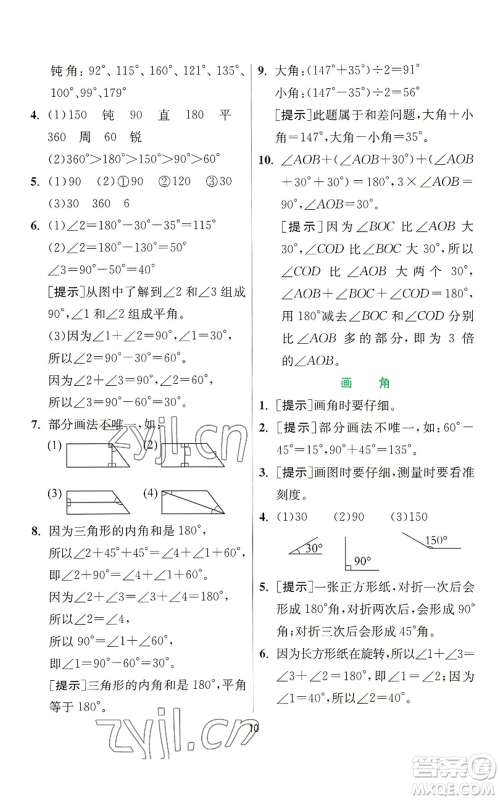 钝角：92°、115°、160°、135°、
100°、99°、179°
4. (1)150　钝　90　直　180　平
360　周　60　锐
(2)360°>180°>150°>90°>60°
5. (1)90　(2)①90　②90　③30
(3)30　360　6
6. (1)∠2=180°-30°-35°=115°
(2)∠2=180°-140°=40°
∠3=90°-50°=40°
[提示]从图中了解到∠2和∠3组成
90°，∠1和∠2组成平角。
(3)因为∠1+∠2=180°，
所以∠2=180°-120°=60°。
因为∠2+∠3=90°，
所以∠3=90°-60°=30°。
7. 部分画法不唯一，如：
(1)
(2)
(3)
(4)
8. 因为三角形的内角和是180°，
所以∠2+45°+45°=180°，
即∠2=90°。
因为∠1+∠2+∠3=180°，
所以∠1+90°+∠3=180°，
即∠1+∠3=90°。
[提示]三角形的内角和是180°，平角
等于180°。
9. 大角：(147°+35°)÷2=91°
小角：(147°-35°)÷2=56°
[提示]此题属于和差问题，大角=
(和+差)÷2，小角=(和-差)÷2。
10. ∠AOB+(∠AOB+30°)+(∠AOB
+30°+30°)=180°，3×∠AOB=
90°，∠AOB=30°。
[提示]因为∠BOC比∠AOB大
30°，∠COD比∠BOC大30°，所以
∠COD比∠AOB大两个30°，
∠AOB+∠BOC+∠COD=180°，
用180°减去∠BOC和∠COD分别
比∠AOB多的部分，即为3倍
的∠AOB。
画　角
1. [提示]画角时要仔细。
2. [提示]部分画法不唯一，如：60°-
45°=15°，90°+45°=135°。
3. [提示]画图时要仔细，测量时要看准
刻度。
4. (1)30　(2)90　(3)150
30°
90°
150°
5. [提示]一张正方形纸，对折一次后会
形成180°角，对折两次后，会形成90°
角；对折三次后会形成45°角。
6. 因为长方形纸在旋转，所以∠1+∠3
=90°，∠2+∠3=90°，即∠1+∠3=
∠2+∠3，所以∠1=∠2。
10
zyjl.cn
zyjl.cn
答案圈
MXQE.COM